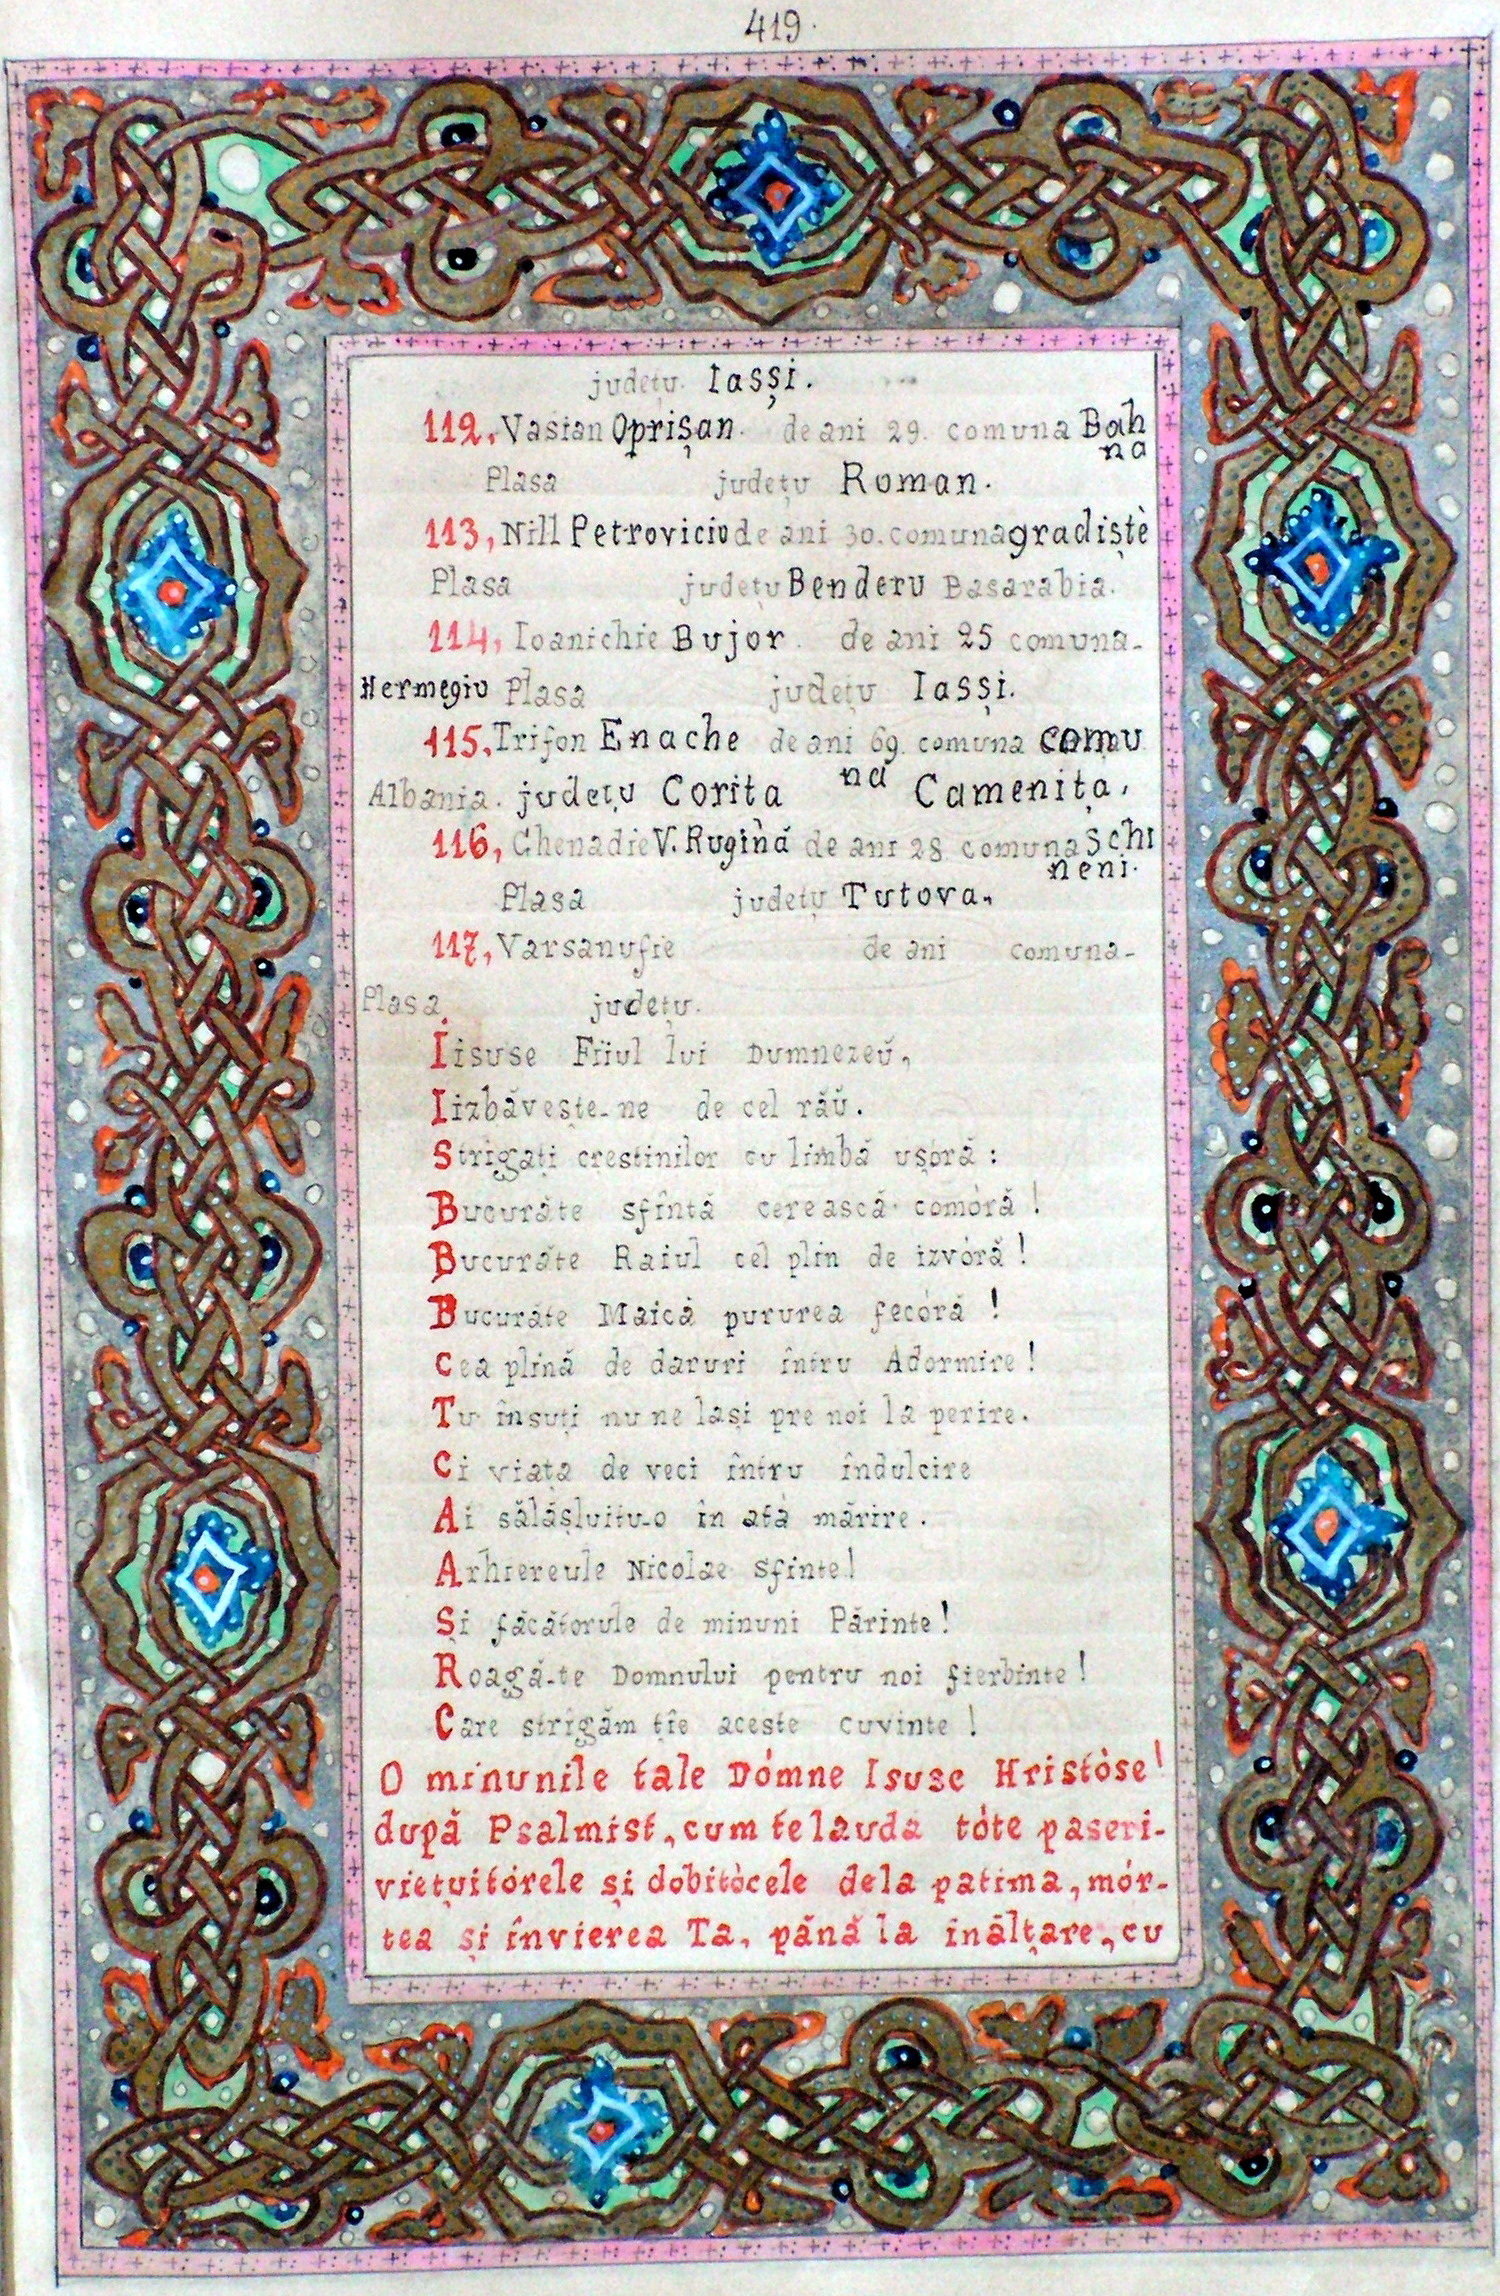 419.
județu. Iașși.
112, Vasian Oprișan. de ani 29. comuna Bah
na
Plasa județu Roman.
113, Nill Petroviciu de ani 30. comuna gradiștè
Plasa județu Benderu Basarabia.
114, Ioanichie Bujor. de ani 25 comuna-
Hermegiu Plasa județu Iașși.
115, Trifon Enache de ani 69. comuna comu
na
Albania. județu Corita Camenița,
116, Ghenadie V. Rugină de ani 28 comuna Schi
neni.
Plasa județu Tutova.
117, Varsanufie de ani comuna-
Plasa, județu.
Iisuse Fiiul lui Dumnezeŭ,
Iizbăvește-ne de cel răŭ.
Strigați crestinilor cu limbă ușoră:
Bucurăte sfîntă cerească comóră!
Bucurăte Raiul cel plin de izvóră!
Bucurăte Maică pururea fecóră!
Cea plină de daruri întru Adormire!
Tu însuți nu ne lași pre noi la perire.
Ci viața de veci întru îndulcire
Ai sălășluitu-o în ată mărire.
Arhiereule Nicolae sfinte!
Și făcătorule de minuni Părinte!
Roagă-te Domnului pentru noi fierbinte!
Care strigăm țîe aceste cuvinte!
O minunile tale Dómne Isuse Hristòse!
după Psalmist, cum te lauda tòte paseri-
viețuitórele și dobitòcele dela patima, mór-
tea și învierea Ta, pănă la înălțare, cu